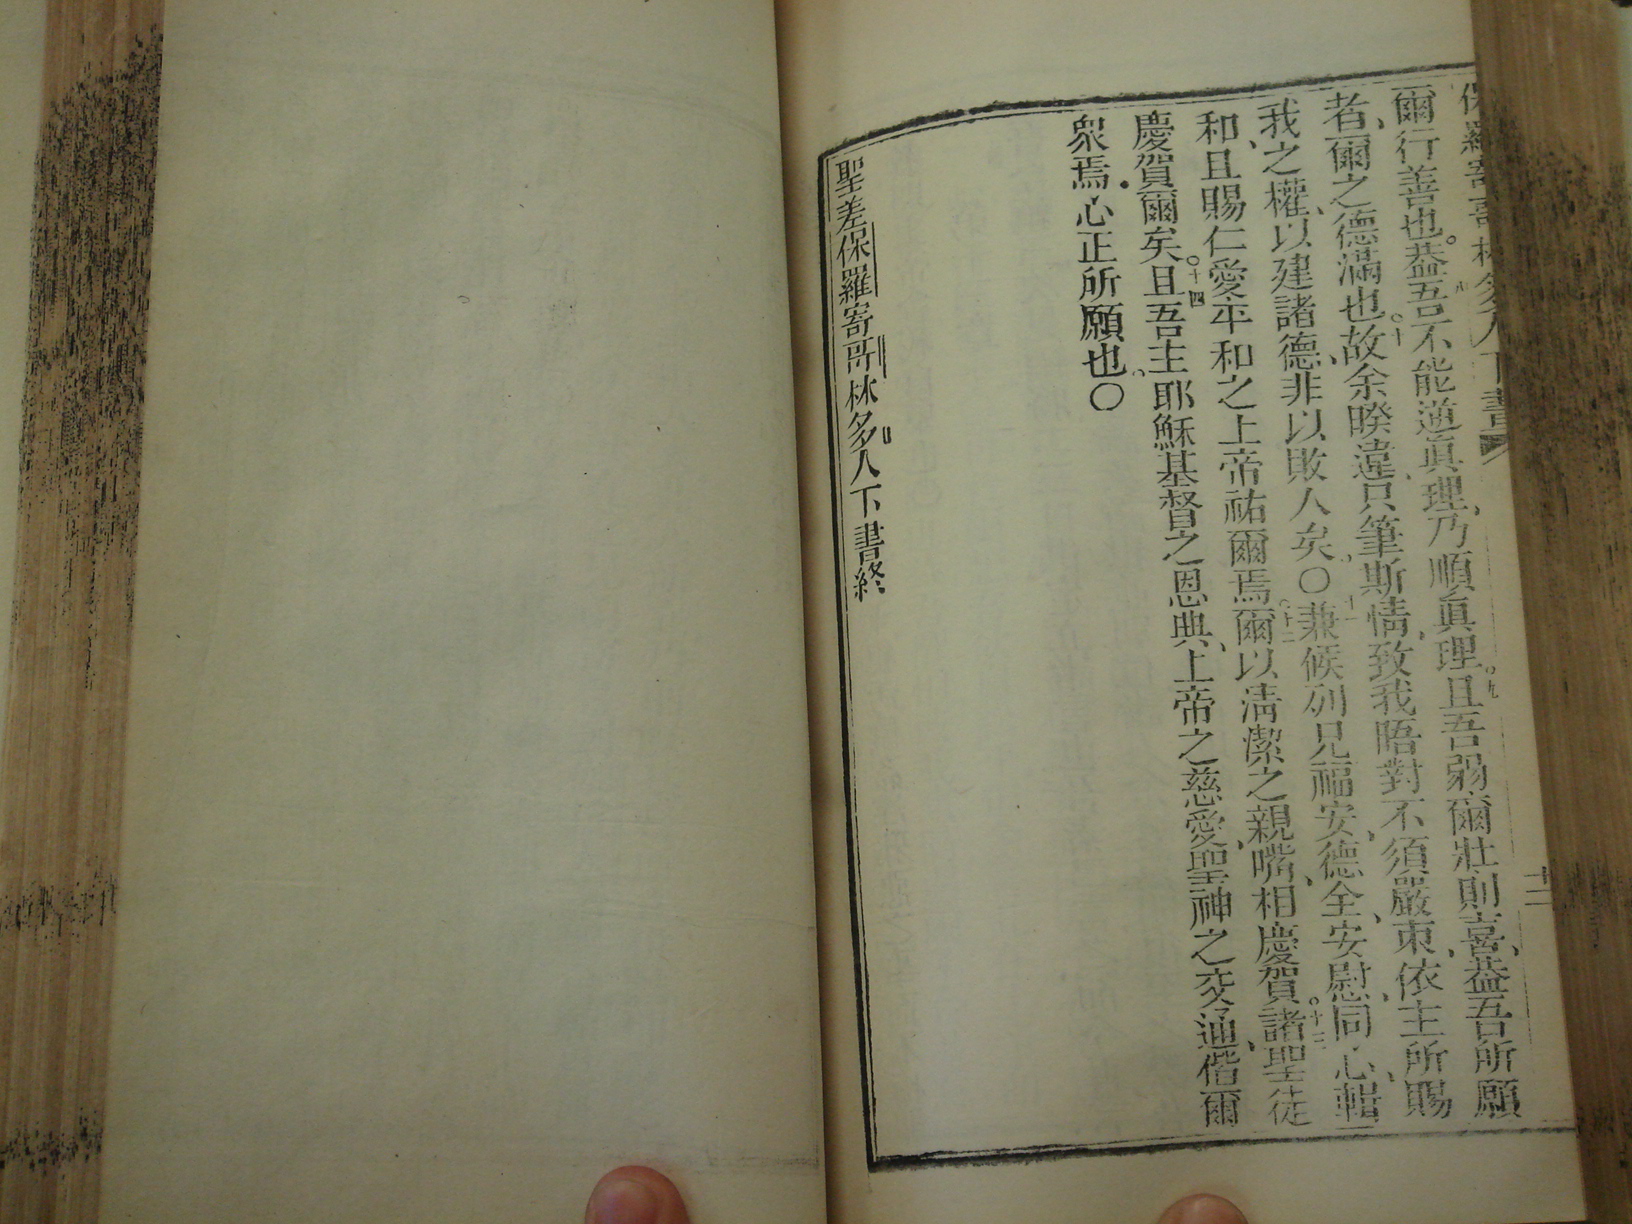 保羅寄哥林多人下書
十二
爾行善也。蓋吾不能逆眞理、乃順眞理。九且吾弱爾壯則喜、蓋吾所願
者、爾之德滿也。十故余暌違、只筆斯情、致我晤對不須嚴束、依主所賜
我之權、以建諸德、非以敗人矣。〇十一兼候列兄福安、德全、安慰、同心、輯
和、且賜仁愛平和之上帝祐爾焉。十二爾以淸潔之親嘴、相慶賀。十三諸聖徒
慶賀爾矣。十四且吾主耶穌基督之恩典、上帝之慈愛、聖神之交通、偕爾
衆焉。心正所願也。〇
聖差保羅寄哥林多人下書終